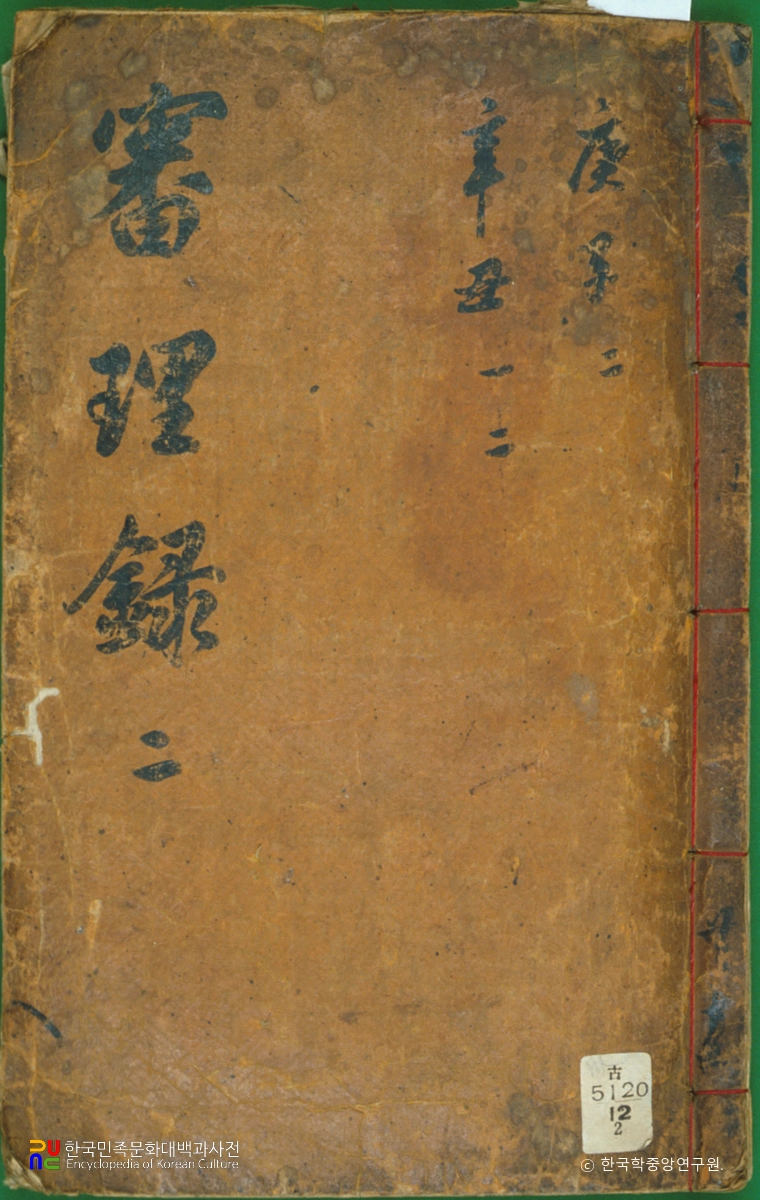 庚子 二
辛丑 一 二
審理錄 二
古
5120
12
2
한국민족문화대백과사전
Encyclopedia of Korean Culture
© 한국학중앙연구원